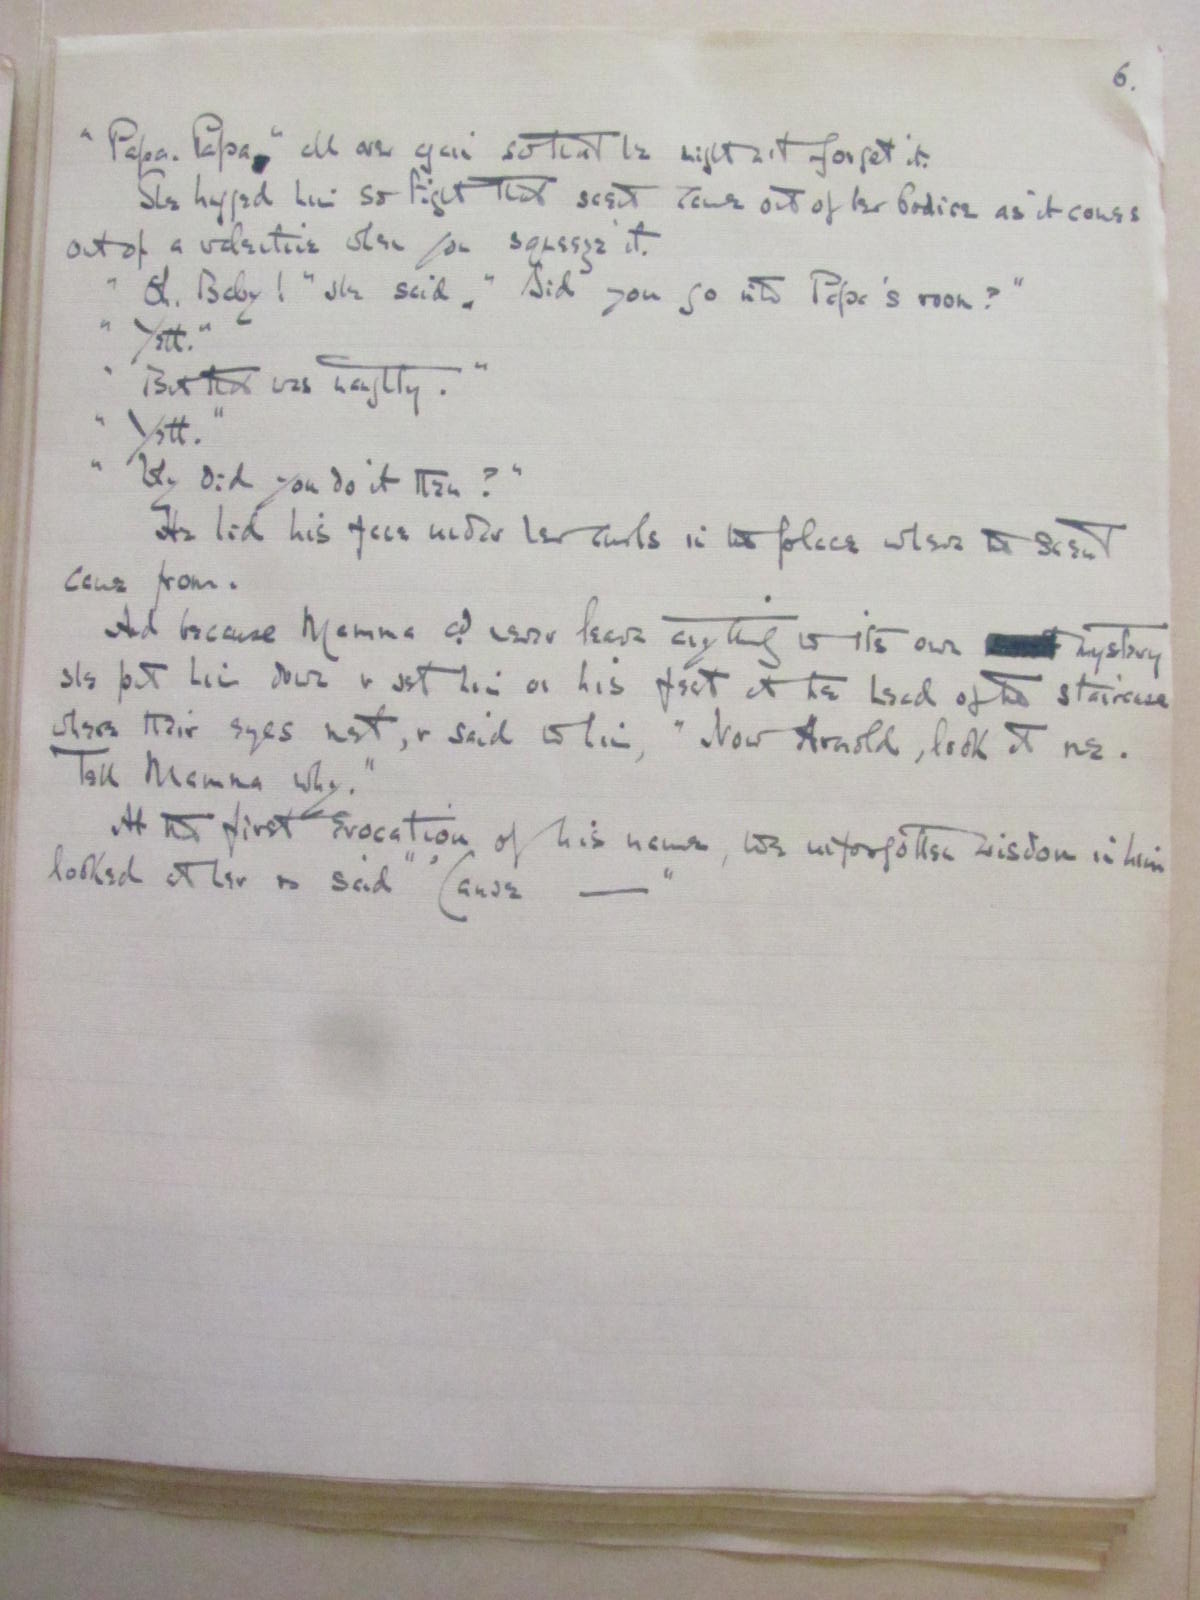 6.
"Papa. Papa," all over again so that he might not forget it.
She hugged him so tight that scent came out of her bodice as it comes
out of a valentine when you squeeze it.
"Oh. Baby!" she said, "Did you go into Papa's room?"
"Yett."
"But that was naughty."
"Yett."
"Why did you do it then?"
He hid his face under her curls in the place where the scent
came from.
And because Mamma could never leave anything to its own mystery
she put him down & set him on his feet at the head of the staircase
where their eyes met, & said to him, "Now Arnold, look at me.
Tell Mamma why."
At the first evocation of his name, the unforgotten wisdom in him
looked at her & said "'Cause —"